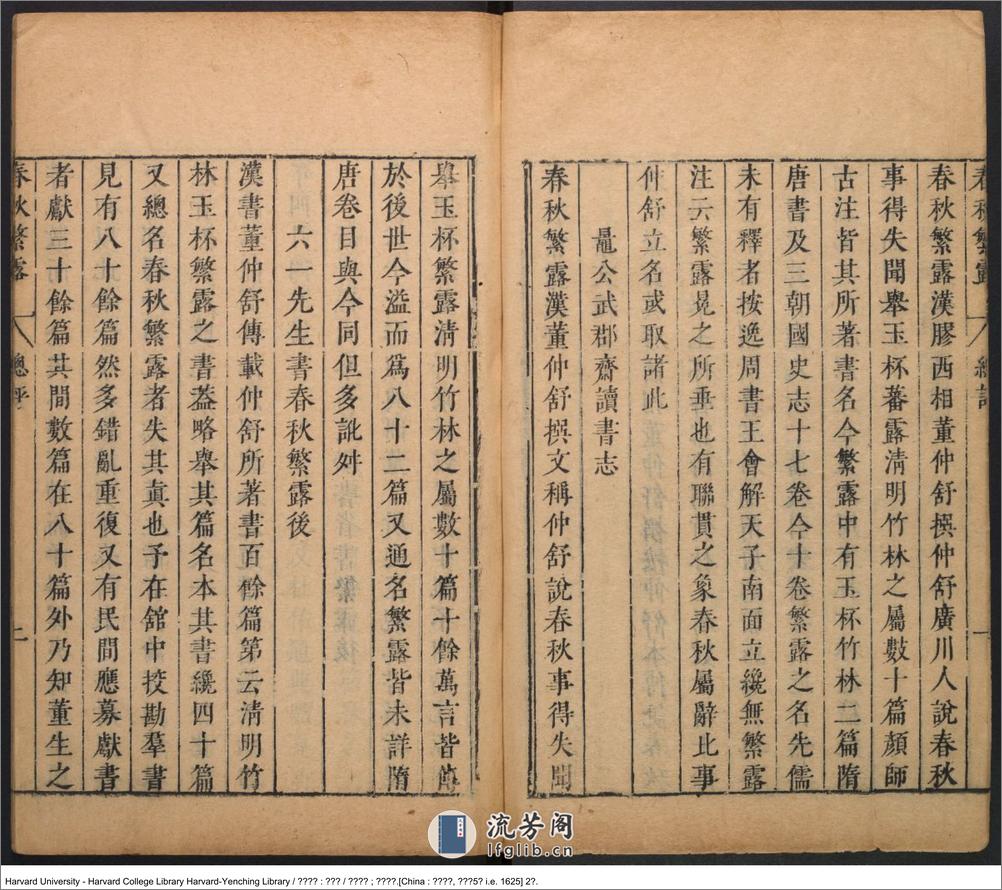 春秋繁露
總評
春秋繁露漢膠西相董仲舒撰仲舒廣川人說春秋
事得失聞舉玉杯蕃露淸明竹林之屬數十篇顏師
古注皆其所著書名今繁露中有玉杯竹林二篇隋
唐書及三朝國史志十七卷今十卷繁露之名先儒
未有釋者按逸周書王會解天子南面立纔無繁露
注云繁露冕之所垂也有聯貫之象春秋屬辭比事
仲舒立名或取諸此
鼂公武郡齋讀書志
春秋繁露漢董仲舒撰文稱仲舒說春秋事得失聞
舉玉杯繁露淸明竹林之屬數十篇十餘萬言皆傳
於後世今溢而爲八十二篇又通名繁露皆未詳隋
唐卷目與今同但多訛舛
六一先生書春秋繁露後
漢書董仲舒傳載仲舒所著書百餘篇第云淸明竹
林玉杯繁露之書葢略舉其篇名本其書纔四十篇
又總名春秋繁露者失其眞也予在舘中挍勘羣書
見有八十餘篇然多錯亂重復又有民間應募獻書
者獻三十餘篇其間數篇在八十篇外乃知董生之
春秋繁露
總評
流芳阁
lfglib.cn
Harvard University - Harvard College Library Harvard-Yenching Library / ???? : ??? / ???? ; ????.[China : ????, ???5? i.e. 1625] 2?.